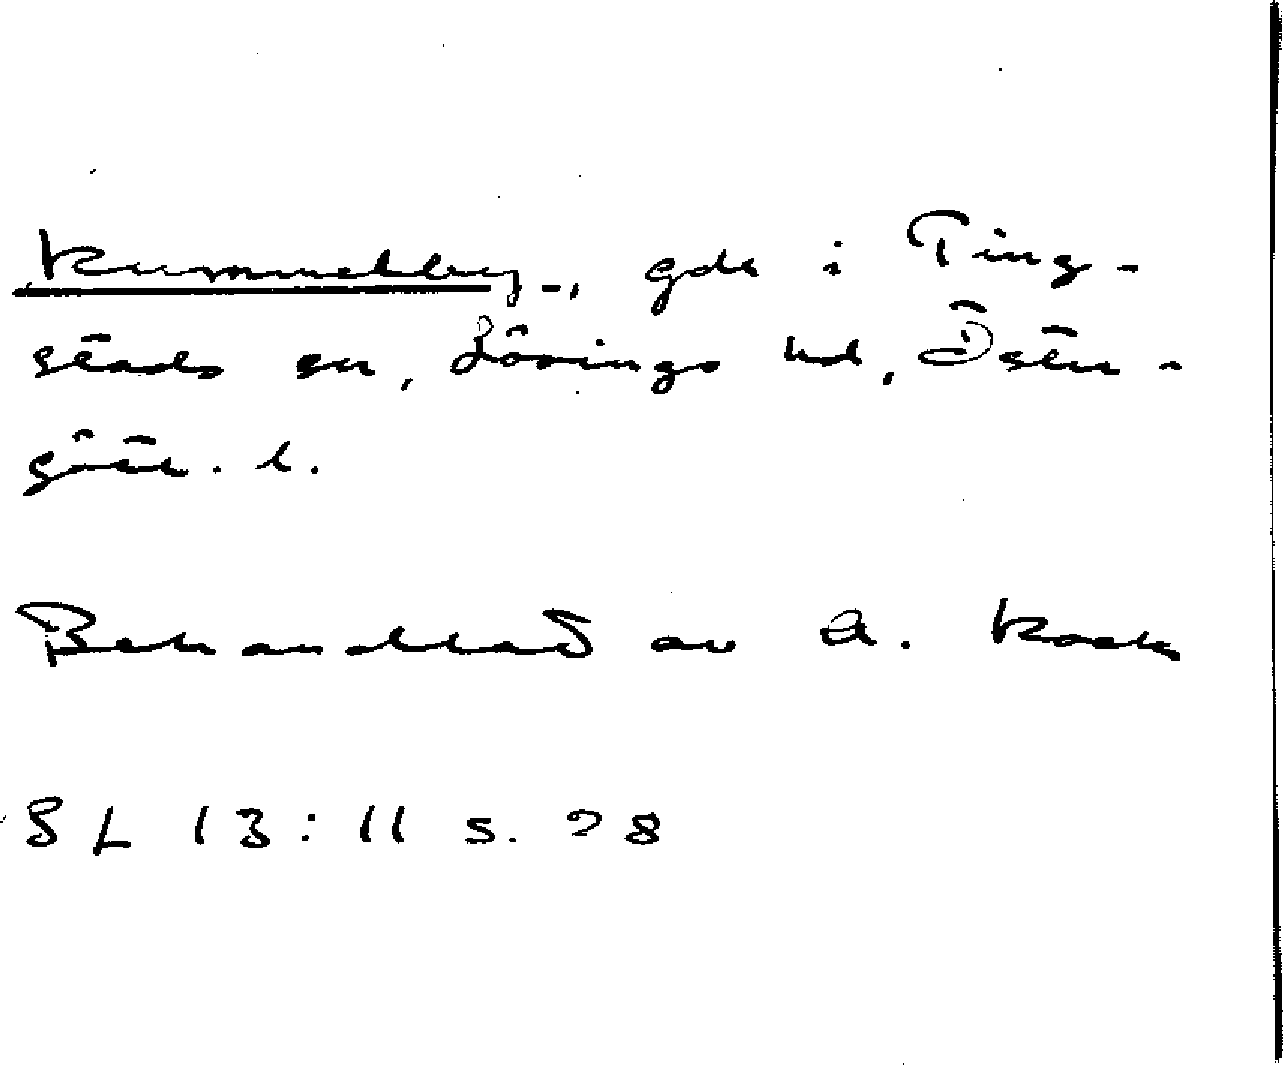 Kummelby-, gde i Ting-
stads sn, Lösings hd, Öster-
götl. l.
Behandlad av A. Kock
SL 13:11 s. 28